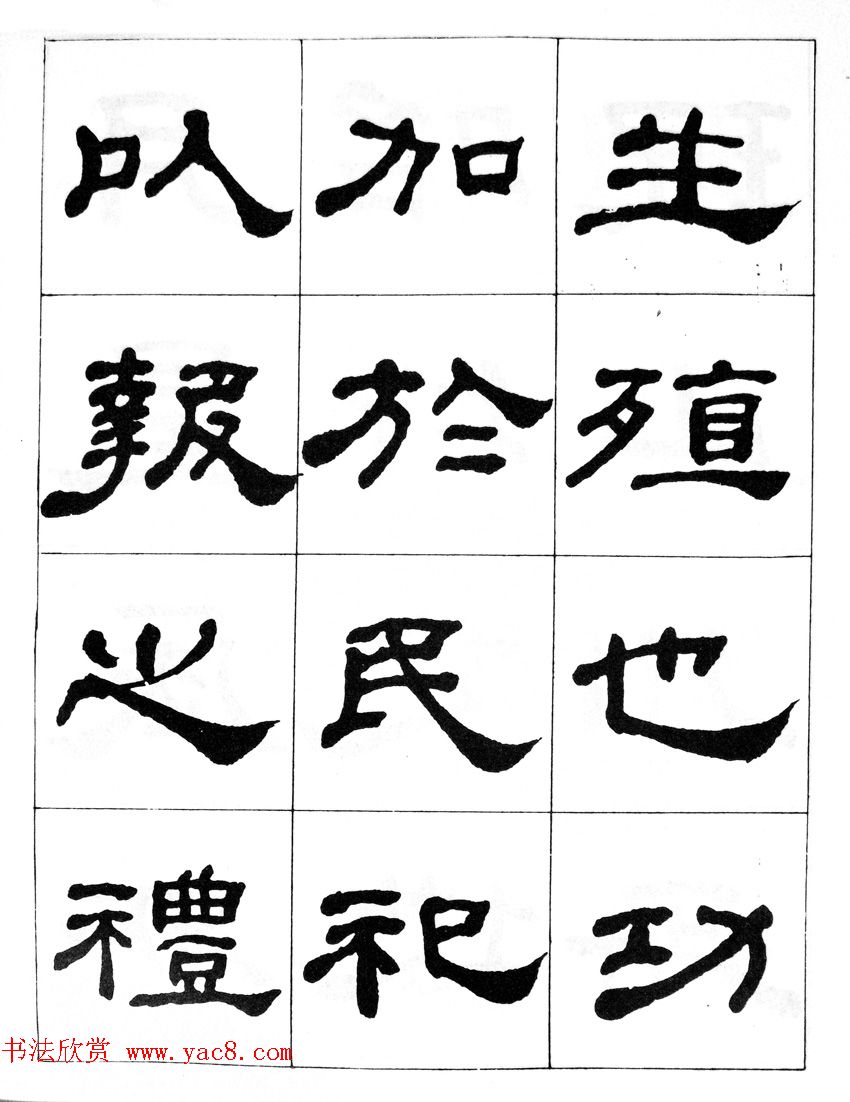 生殖也功
加於民祀
以報之禮
书法欣赏 www.yac8.com